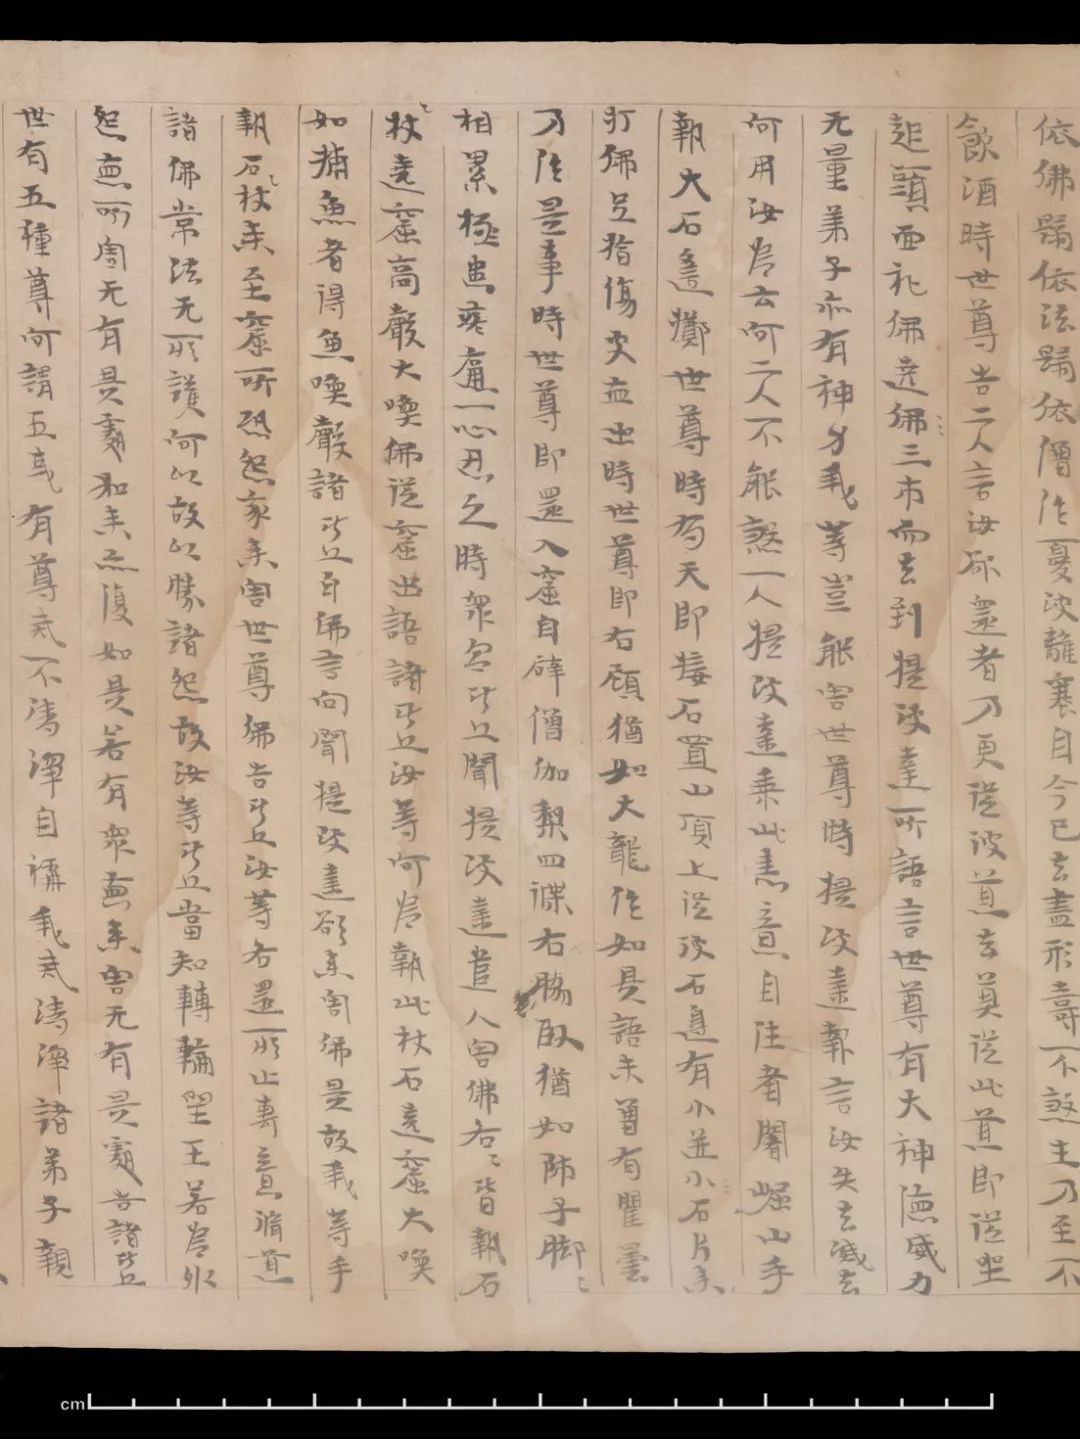 依佛歸依法歸依僧作憂波離襄自今已去盡形壽不煞生乃至不
飲酒時世尊告二人言汝欲還者乃更從彼道去莫從此道即從坐
起頭面礼佛遶佛三帀而去到提波達所語言世尊有大神德威力
无量弟子亦有神力我等豈能害世尊時提波達報言汝失去滅去
何用汝為云何二人不能煞一人提波達乘此恚意自往耆闍崛山手
執大石遙擲世尊時有天即接石置山頂上從彼石邊有小迸小石片来
打佛足指傷皮血出時世尊即右顧猶如大龍作如是語未曾有瞿曇
乃作是事時世尊即還入窟自襞僧伽梨四襵右脇臥猶如師子脚ミ
相累極患疼痛一心忍之時眾多比丘聞提波達遣人害佛各ミ皆執石
杖ミ遶窟高聲大喚佛從窟出語諸比丘汝等何為執此杖石遶窟大喚
如捕魚者得魚喚聲諸比丘白佛言向聞提波達欲来害佛是故我等手
執石杖ミ来至窟所恐怨家来害世尊佛告比丘汝等各還所止專意脩道
諸佛常法无所護何以故以勝諸怨故汝等比丘當知轉輪聖王若為外
怨惡所害无有是處如来亦復如是若有眾惡来害无有是處告諸比丘
世有五種尊何謂五或有尊戒不清淨自稱我戒清淨諸弟子親